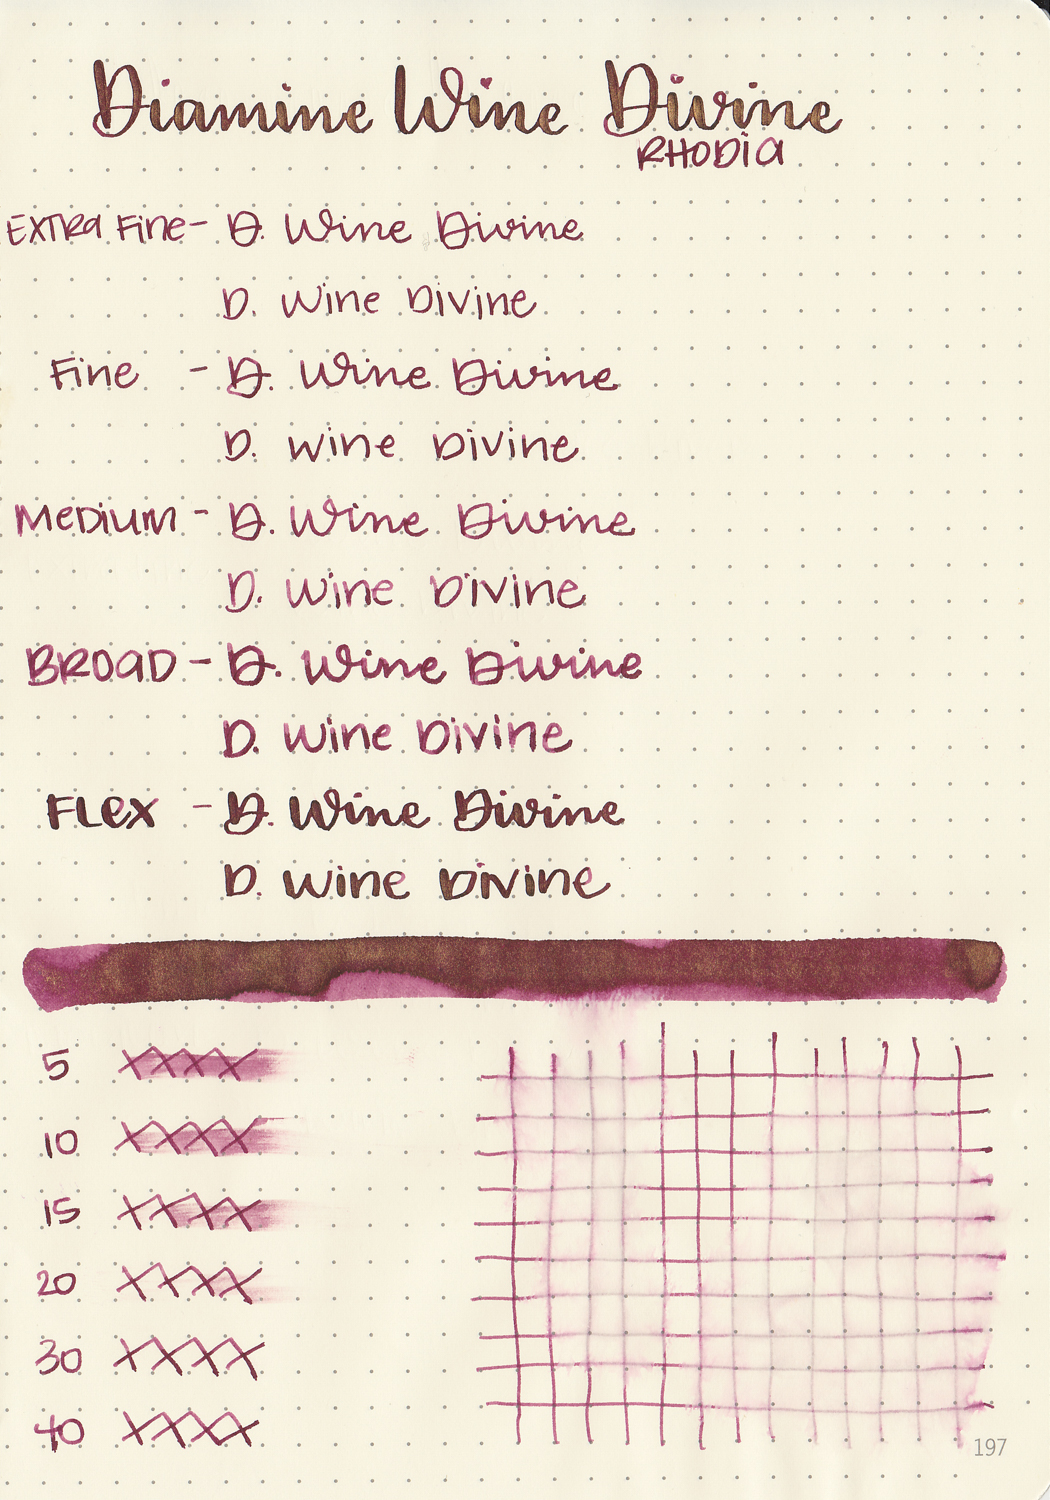 Diamine Wine Divine
RHODIA
EXTRA Fine - D. Wine Divine
D. Wine Divine
Fine - D. Wine Divine
D. Wine Divine
MEDIUM - D. Wine Divine
D. Wine Divine
BROAD - D. Wine Divine
D. Wine Divine
FLEX - D. Wine Divine
D. Wine Divine
5 XXXX
10 XXXX
15 XXXX
20 XXXX
30 XXXX
40 XXXX
197